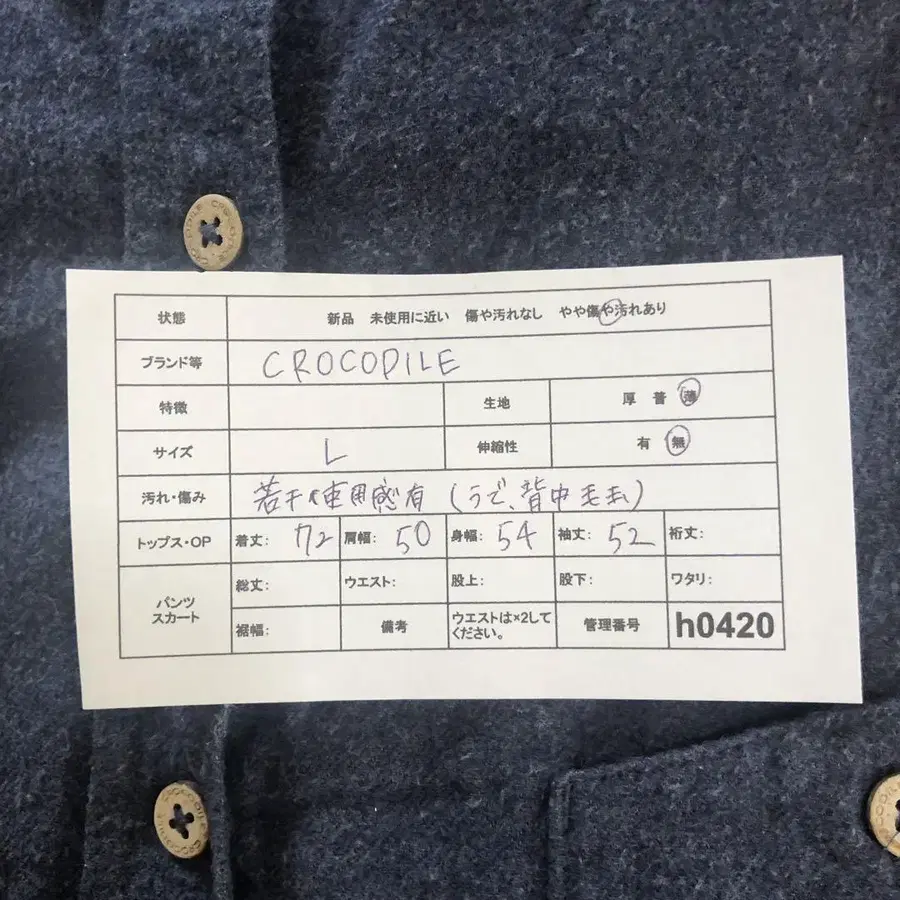 CROCODILE CROCODILE
状態 新品 未使用に近い 傷や汚れなし やや傷や汚れあり
ブランド等 CROCODILE
特徴 生地 厚 普 薄
サイズ L 伸縮性 有 無
汚れ・傷み 若干使用感有(うで、背中毛玉)
トップス・OP 着丈: 72 肩幅: 50 身幅: 54 袖丈: 52 裄丈:
パンツ
スカート
総丈: ウエスト: 股上: 股下: ワタリ:
裾幅: 備考 ウエストは×2して
ください。 管理番号 h0420
CROCODILE CROCODILE
CROCODILE